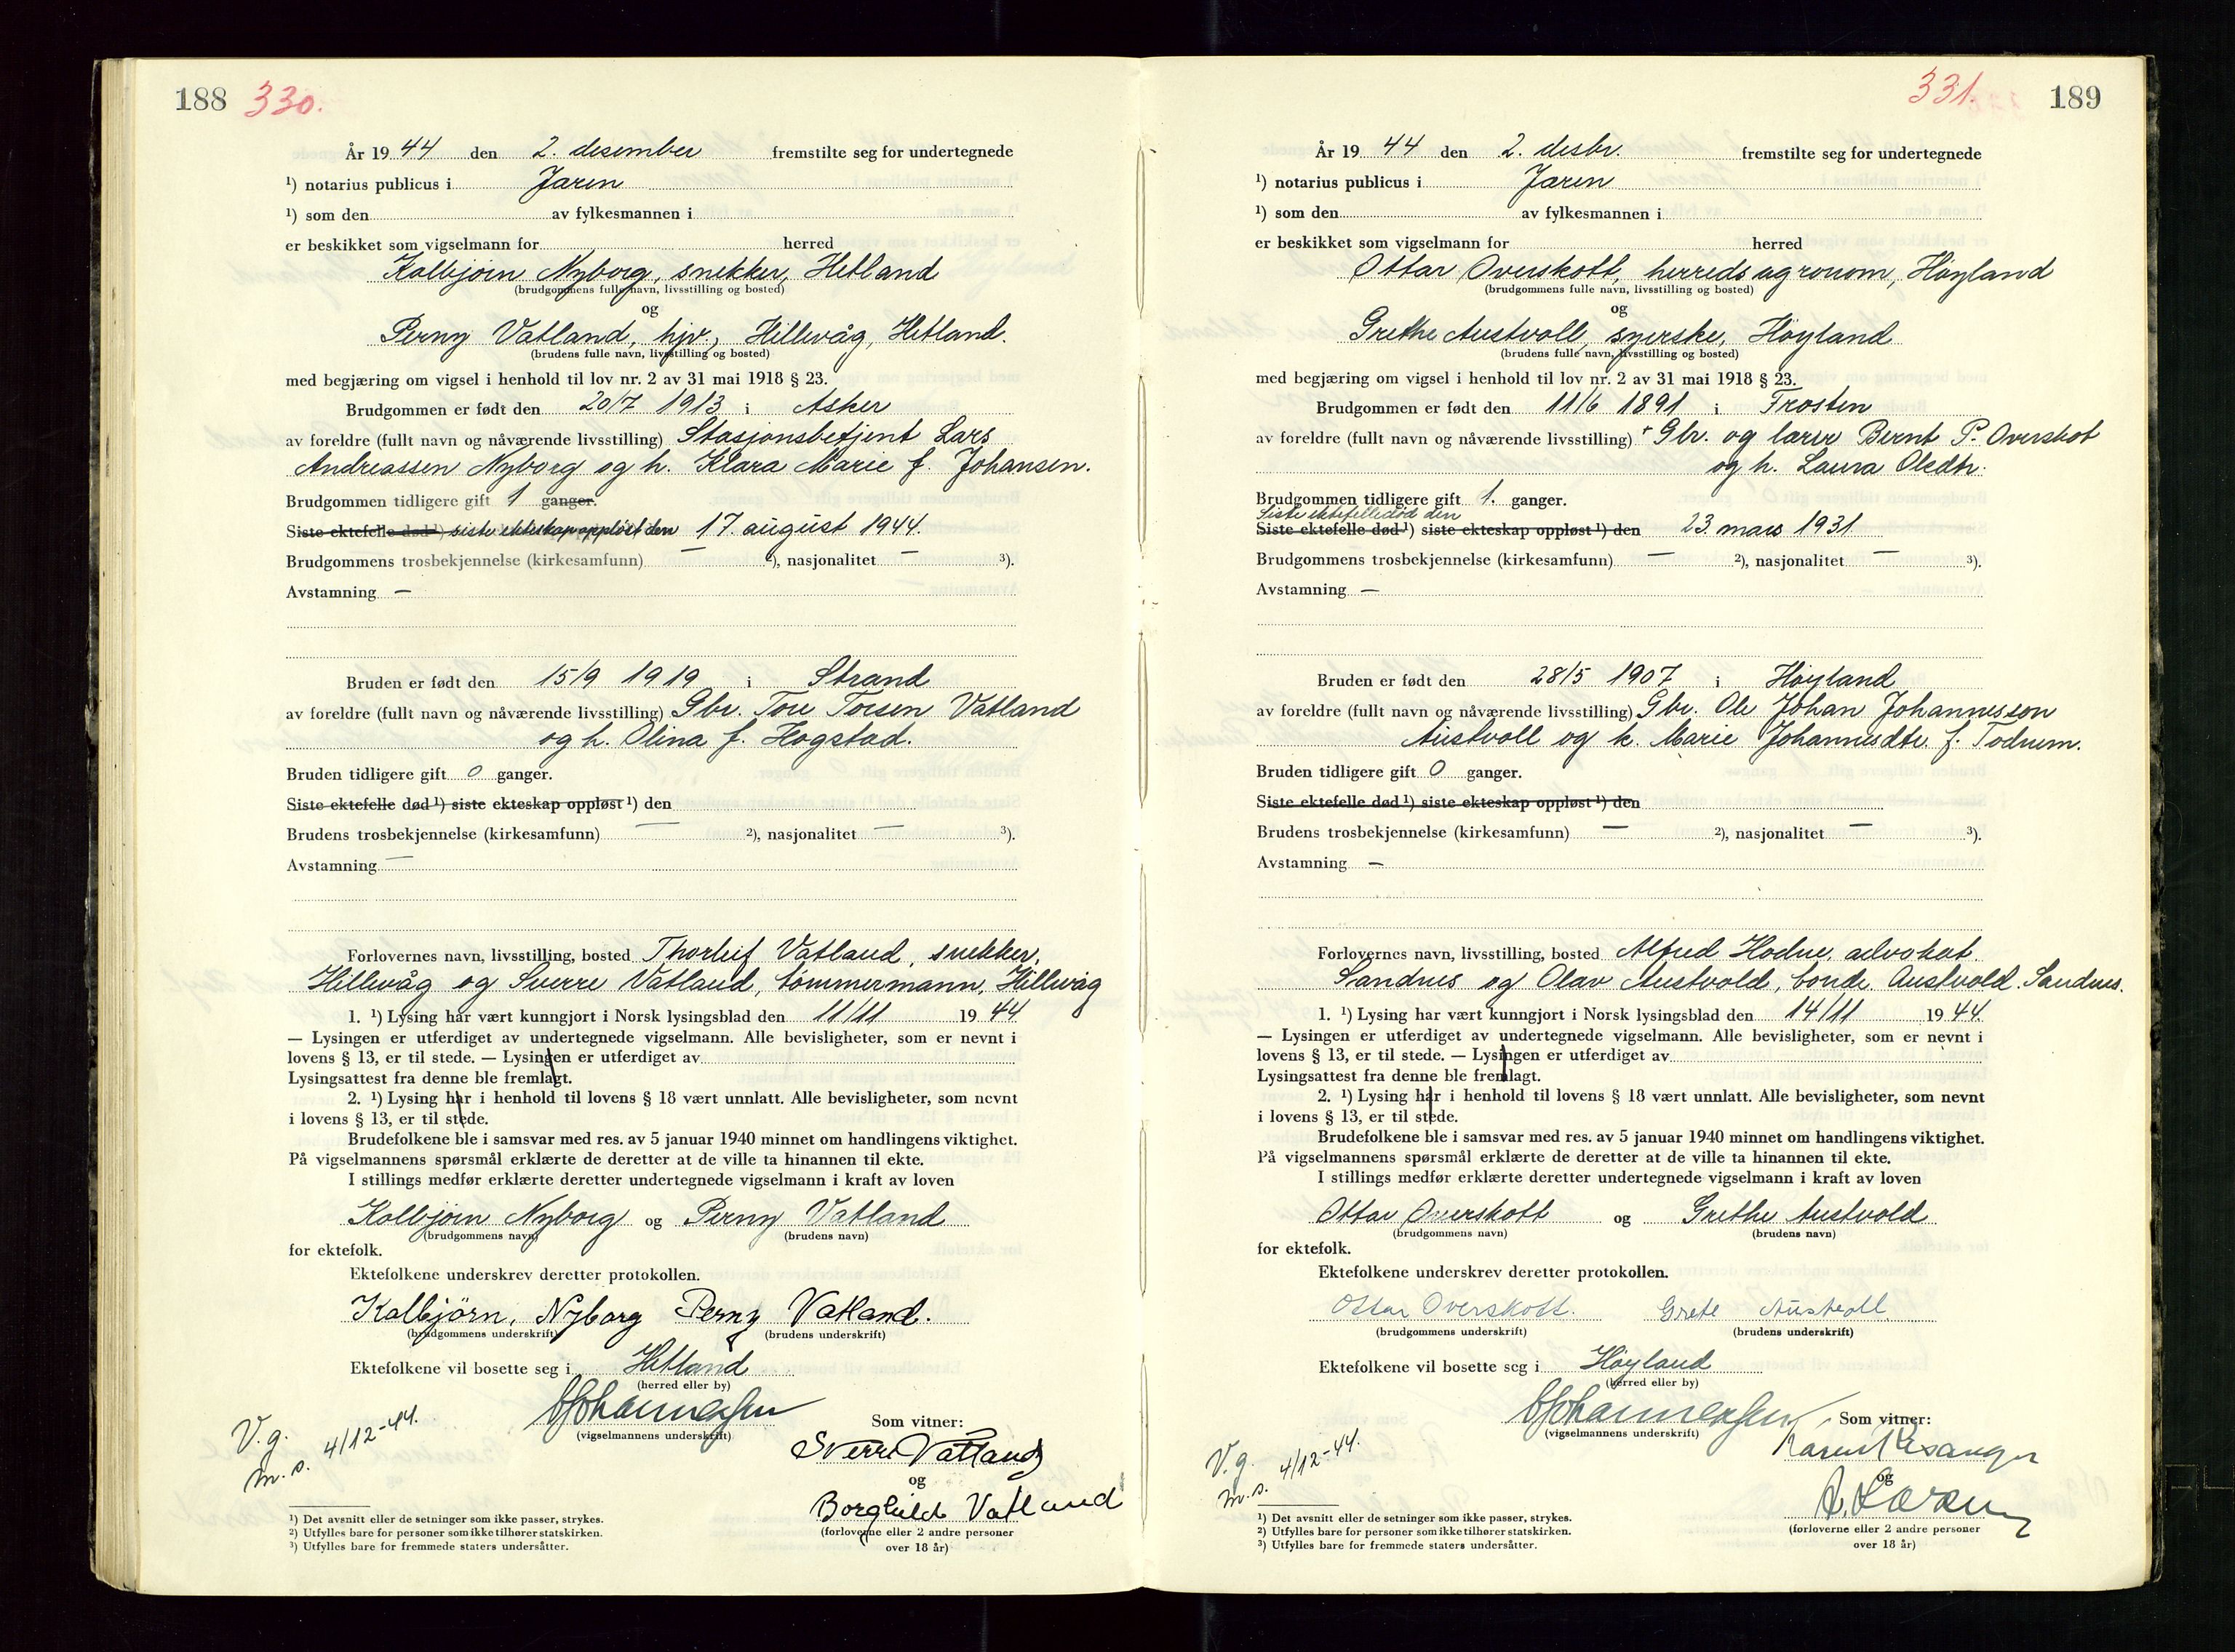 188 330.
År 19 44 den 2. desember fremstilte seg for undertegnede
¹) notarius publicus i Jæren
¹) som den av fylkesmannen i
er beskikket som vigselmann for herred
Kolbjørn Nyborg, snekker, Hetland
(brudgommens fulle navn, livsstilling og bosted)
og
Perny Vatland, hjv., Hillevåg, Hetland.
(brudens fulle navn, livsstilling og bosted)
med begjæring om vigsel i henhold til lov nr. 2 av 31 mai 1918 § 23.
Brudgommen er født den 20/7 1913 i Asker
av foreldre (fullt navn og nåværende livsstilling) Stasjonsbetjent Lars
Andreassen Nyborg og h. Klara Marie f. Johansen.
Brudgommen tidligere gift 1 ganger.
Siste ektefelle død ¹) siste ekteskap oppløst den 17. august 1944.
Brudgommens trosbekjennelse (kirkesamfunn) — ²), nasjonalitet — ³).
Avstamning —
Bruden er født den 15/9 1919 i Strand
av foreldre (fullt navn og nåværende livsstilling) Gbr. Tore Torsen Vatland
og h. Olina f. Hogstad.
Bruden tidligere gift 0 ganger.
Siste ektefelle død ¹) siste ekteskap oppløst ¹) den
Brudens trosbekjennelse (kirkesamfunn) — ²), nasjonalitet — ³).
Avstamning —
Forlovernes navn, livsstilling, bosted Thorleif Vatland, snekker,
Hillevåg og Sverre Vatland, tømmermann, Hillevåg
1. ¹) Lysing har vært kunngjort i Norsk lysingsblad den 11/11 19 44
— Lysingen er utferdiget av undertegnede vigselmann. Alle bevisligheter, som er nevnt i
lovens § 13, er til stede. — Lysingen er utferdiget av
Lysingsattest fra denne ble fremlagt.
2. ¹) Lysing har i henhold til lovens § 18 vært unnlatt. Alle bevisligheter, som nevnt
i lovens § 13, er til stede.
Brudefolkene ble i samsvar med res. av 5 januar 1940 minnet om handlingens viktighet.
På vigselmannens spørsmål erklærte de deretter at de ville ta hinannen til ekte.
I stillings medfør erklærte deretter undertegnede vigselmann i kraft av loven
Kolbjørn Nyborg og Perny Vatland
(brudgommens navn) (brudens navn)
for ektefolk.
Ektefolkene underskrev deretter protokollen.
Kolbjörn, Nyborg Perny Vatland.
(brudgommens underskrift) (brudens underskrift)
Ektefolkene vil bosette seg i Hetland
(herred eller by)
(vigselmannens underskrift)
V.g.
m.s. 4/12-44.
Som vitner:
Sverre Vatland
og
Borghild Vatland
(forloverne eller 2 andre personer
over 18 år)
¹) Det avsnitt eller de setninger som ikke passer, strykes.
²) Utfylles bare for personer som ikke tilhører statskirken.
³) Utfylles bare for fremmede staters undersåtter.
331. 189
År 19 44 den 2. desbr. fremstilte seg for undertegnede
¹) notarius publicus i Jæren
¹) som den av fylkesmannen i
er beskikket som vigselmann for herred
Ottar Overskott, herredsagronom, Høyland
(brudgommens fulle navn, livsstilling og bosted)
og
Grethe Austvoll, syerske, Høyland
(brudens fulle navn, livsstilling og bosted)
med begjæring om vigsel i henhold til lov nr. 2 av 31 mai 1918 § 23.
Brudgommen er født den 11/6 1891 i Frosten
av foreldre (fullt navn og nåværende livsstilling) + Gbr. og lærer Bernt P. Overskot
og h. Laura Olsdtr.
Brudgommen tidligere gift 1. ganger.
Siste ektefelle død den
Siste ektefelle død ¹) siste ekteskap oppløst ¹) den 23. mars 1931.
Brudgommens trosbekjennelse (kirkesamfunn) — ²), nasjonalitet — ³).
Avstamning —
Bruden er født den 28/5 1907 i Høyland
av foreldre (fullt navn og nåværende livsstilling) Gbr. Ole Johan Johannesson
Austvoll og h. Marie Johannesdtr. f. Todnem.
Bruden tidligere gift 0 ganger.
Siste ektefelle død ¹) siste ekteskap oppløst ¹) den
Brudens trosbekjennelse (kirkesamfunn) — ²), nasjonalitet — ³).
Avstamning —
Forlovernes navn, livsstilling, bosted Alfred Hodne, advokat.
Sandnes og Olav Austvold, bonde Austvold. Sandnes.
1. ¹) Lysing har vært kunngjort i Norsk lysingsblad den 14/11 19 44.
— Lysingen er utferdiget av undertegnede vigselmann. Alle bevisligheter, som er nevnt i
lovens § 13, er til stede. — Lysingen er utferdiget av
Lysingsattest fra denne ble fremlagt.
2. ¹) Lysing har i henhold til lovens § 18 vært unnlatt. Alle bevisligheter, som nevnt
i lovens § 13, er til stede.
Brudefolkene ble i samsvar med res. av 5 januar 1940 minnet om handlingens viktighet.
På vigselmannens spørsmål erklærte de deretter at de ville ta hinannen til ekte.
I stillings medfør erklærte deretter undertegnede vigselmann i kraft av loven
Ottar Overskott og Grethe Austvold
(brudgommens navn) (brudens navn)
for ektefolk.
Ektefolkene underskrev deretter protokollen.
Ottar Overskott. Grete Austvoll.
(brudgommens underskrift) (brudens underskrift)
Ektefolkene vil bosette seg i Høyland
(herred eller by)
(vigselmannens underskrift)
V.g.
m.s. 4/12-44.
Som vitner:
og
(forloverne eller 2 andre personer
over 18 år)
¹) Det avsnitt eller de setninger som ikke passer, strykes.
²) Utfylles bare for personer som ikke tilhører statskirken.
³) Utfylles bare for fremmede staters undersåtter.